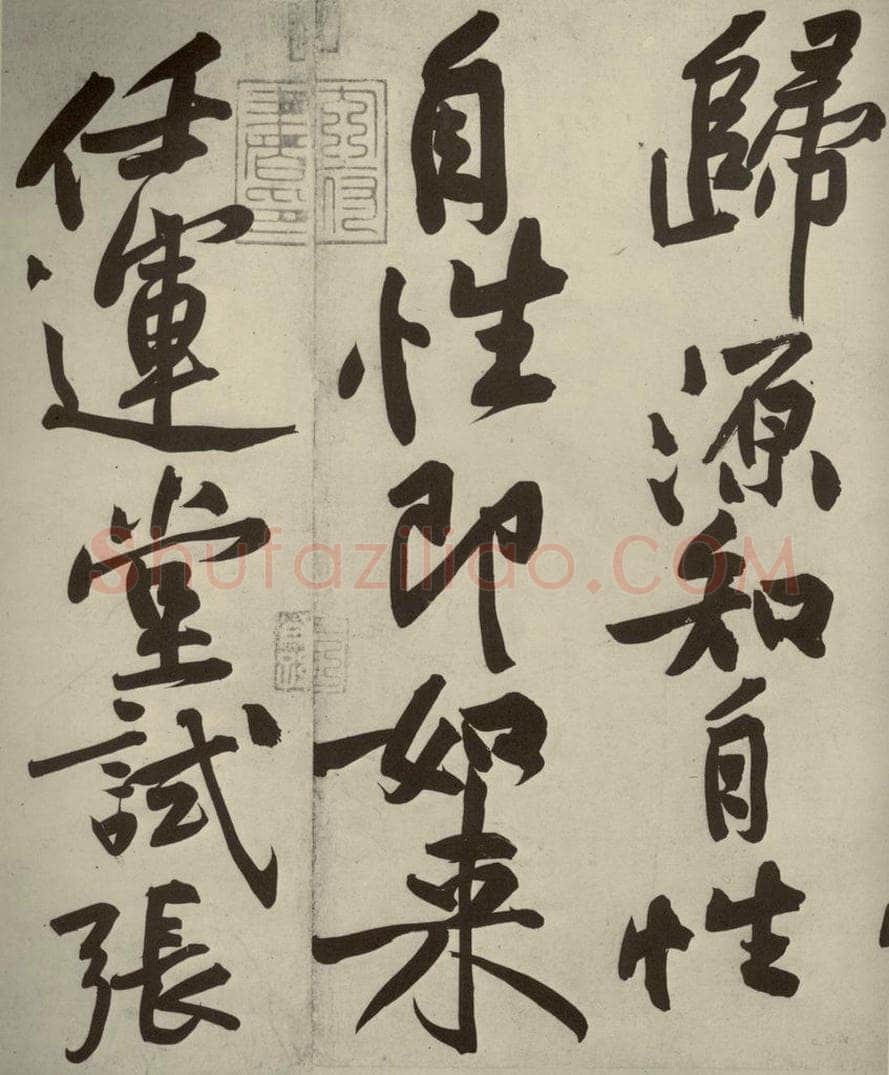 歸源知自性
自性即如来
任運堂試張
Shufaziliao.COM